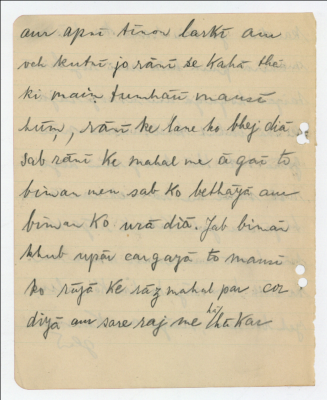 aur apnī tīnon larkī aur
veh kutrī jo rānī se kahā thī
ki main tumhārī mausī
hūṃ, rānī ke lane ko bhej diā.
sab rānī ke mahal me ā gaī to
bīmān men sab ko bethāyā aur
bīmān ko urā diā. Jab bīmān
khub upar cargayā to mausī
ko rājā ke rāz mahal par cor
diyā aur sare raj me hī